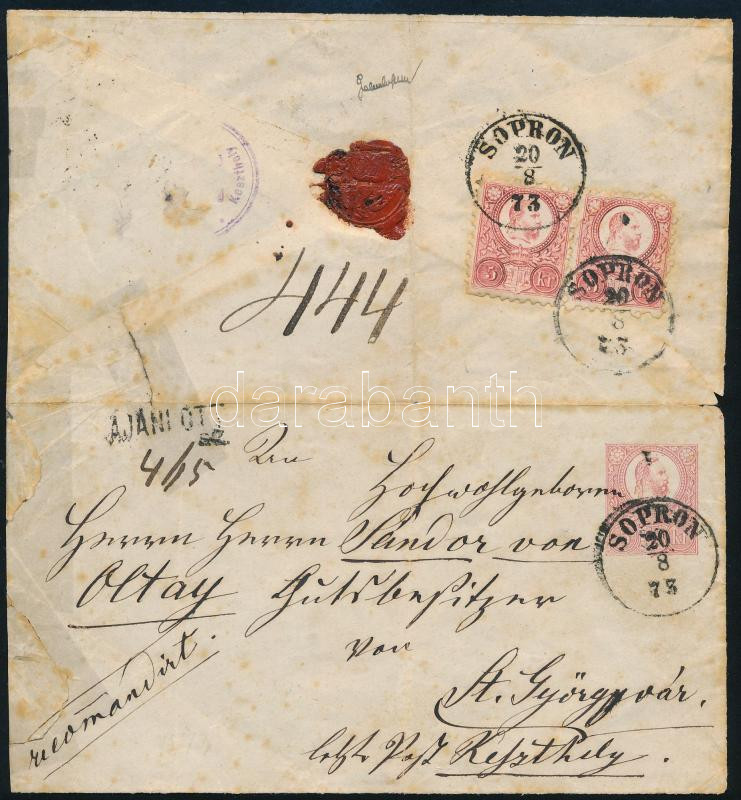 SOPRON
20
8
73
5 Kr
SOPRON
20
8
73
Keszthely
444
darabanth
AJÁNLOTT
4/15
An
Hochwohlgeboren
Herrn Herrn Sándor von
Oltay Gutsbesitzer
von
St. Györgyvár.
letzte Post Keszthely.
recomandirt.
SOPRON
20
8
73